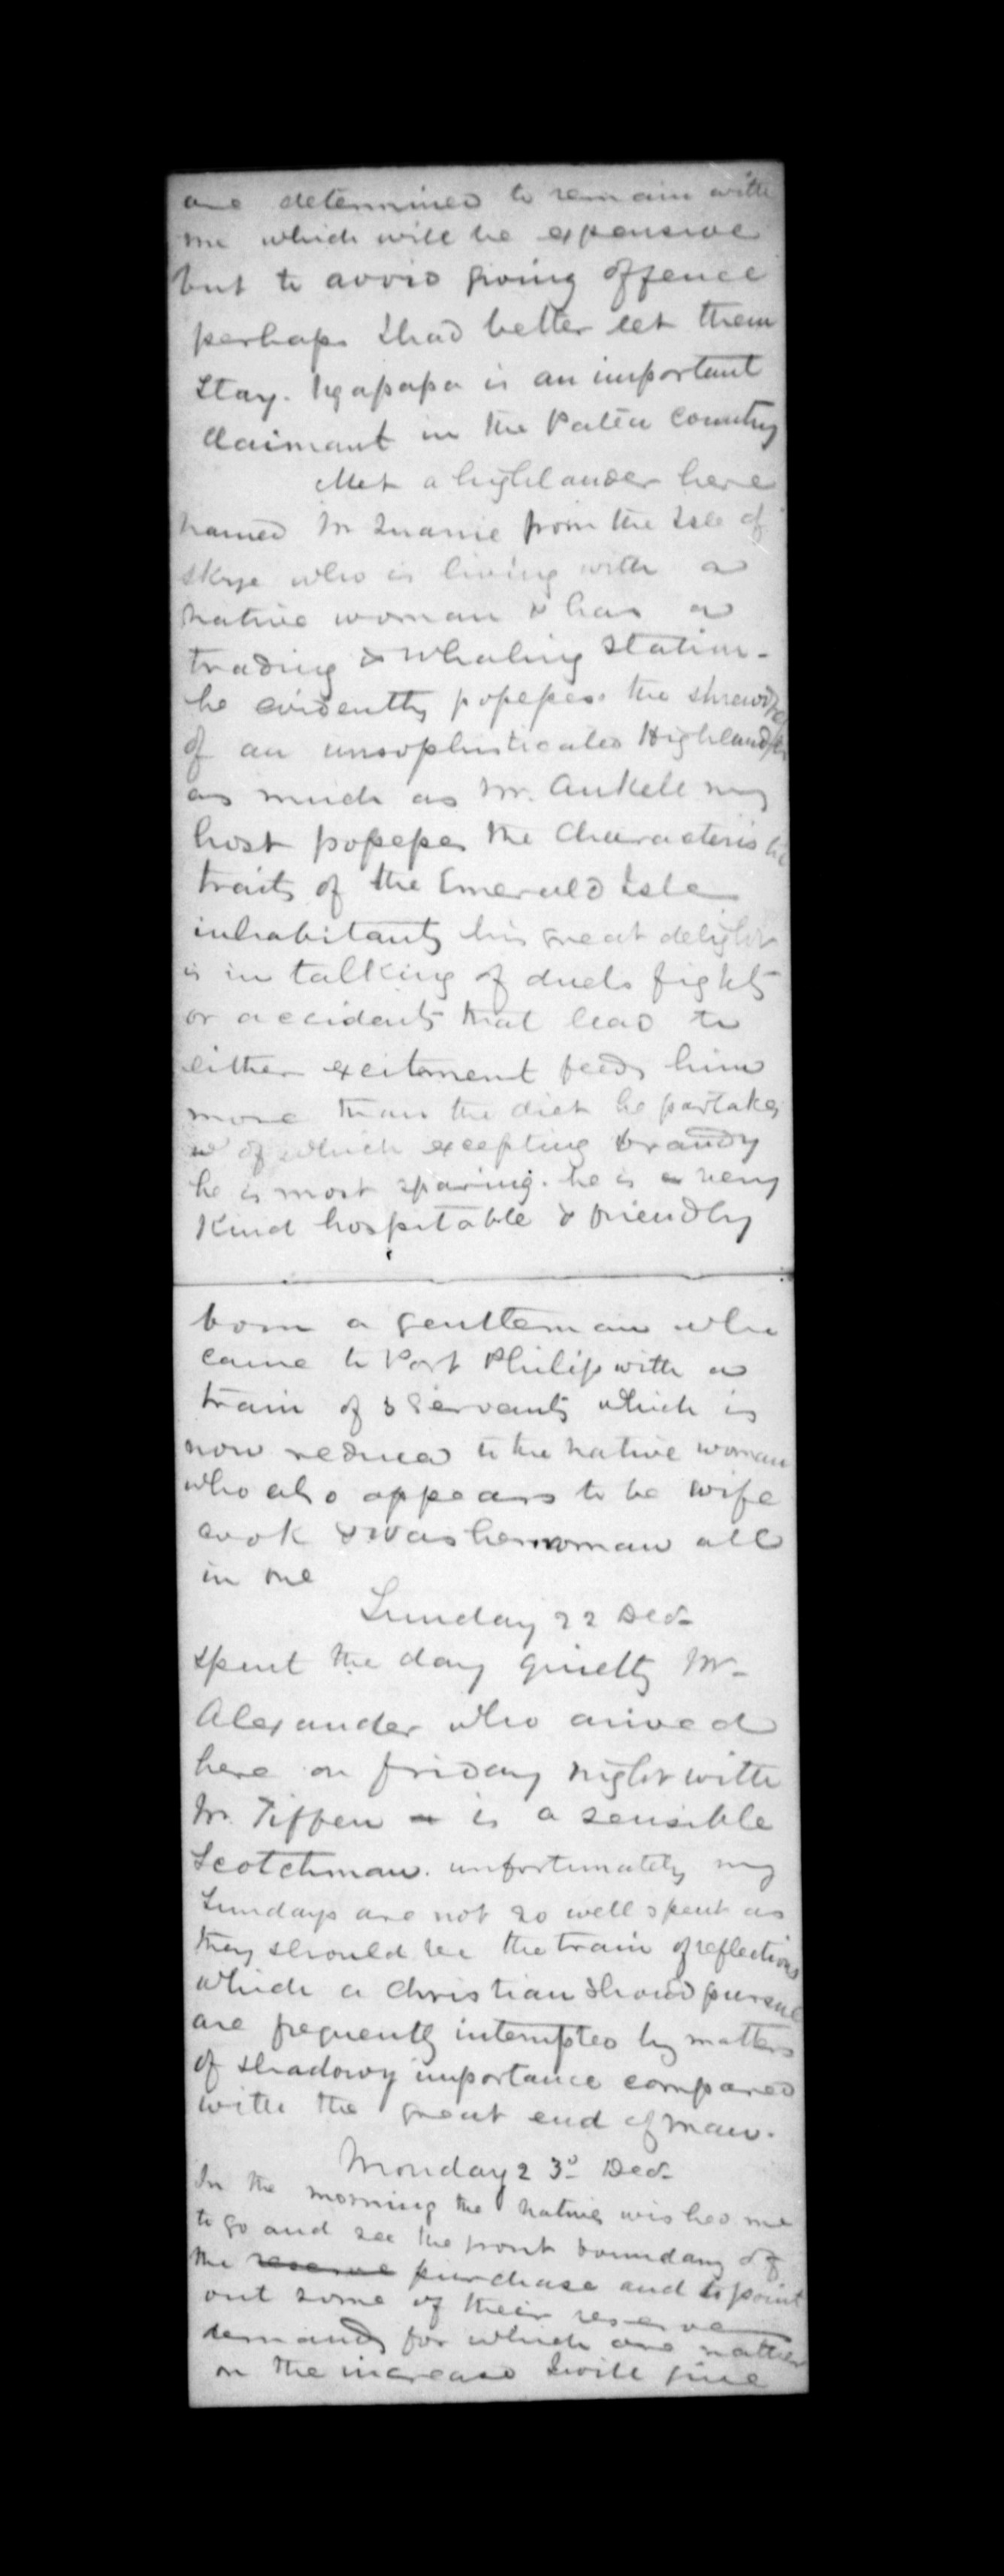 are determined to remain with
me which will be expensive
but to avoid giving offence
perhaps I had better let them
stay. Ngapapa is an important
claimant in the Patea Country
Met a highlander here
named Mr from the Isle of
Skye who is living with a
native woman & has a
trading & Whaling station -
he evidently possesses the shrewdness
of an unsophisticated Highlander
as much as Mr. Ankell my
host possesses the Characteristic
traits of the Emerald Isle
inhabitants his great delight
is in talking of duels fights
or accidents that lead to
either excitement feeds him
more than the diet he partakes
of which excepting brandy
he is most sparing. he is a very
Kind hospitable & friendly
born a gentleman who
came to Port Philip with a
train of 3 Servants which is
now reduced to the native woman
who also appears to be wife
cook & Washerwoman all
in one
Sunday 22 Decr
spent the day quietly Mr
Alexander who arived
here on friday night with
Mr. Tiffen is a sensible
Scotchman. unfortunately my
Sundays are not so well spent as
they should be the train of reflections
which a Christian should pursue
are frequently interrupted by matters
of shadowy importance compared
with the great end of man.
Monday 23d Decr
In the morning the natives wished me
to go and see the front boundary of
the reserve purchase and to point
out some of their reserve
demands for which are rather
on the increase I will give